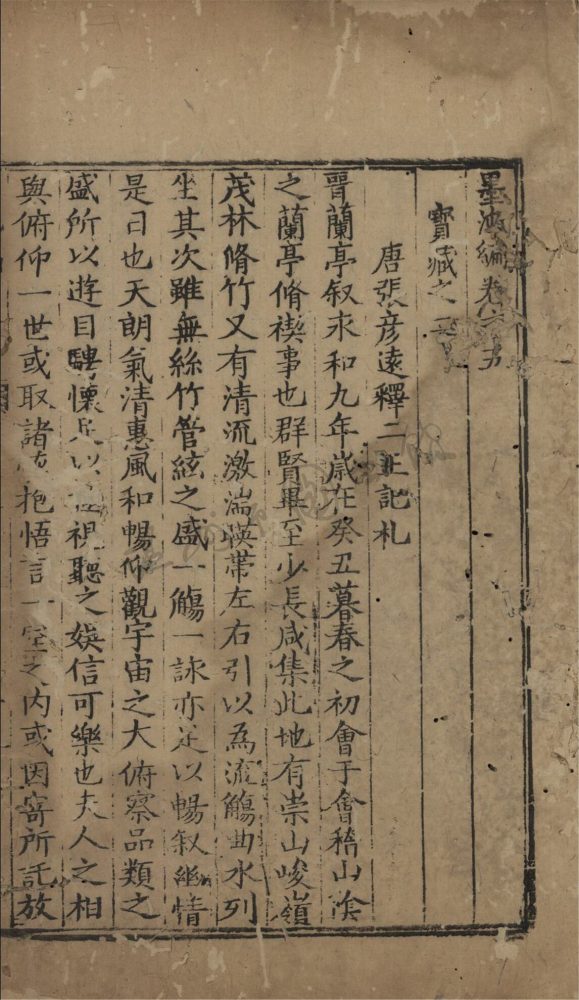 墨池編卷六五
寶藏之二
唐張彦遠釋二王記札
晉蘭亭叙永和九年歲在癸丑暮春之初會于會稽山隂
之蘭亭脩禊事也群賢畢至少長咸集此地有崇山峻嶺
茂林脩竹又有清流激湍暎帶左右引以為流觴曲水列
坐其次雖無絲竹管絃之盛一觴一詠亦足以暢叙幽情
是日也天朗氣清惠風和暢仰觀宇宙之大俯察品類之
盛所以遊目騁懷足以視聽之娛信可樂也夫人之相
與俯仰一世或取諸抱悟言一室之内或因寄所託放